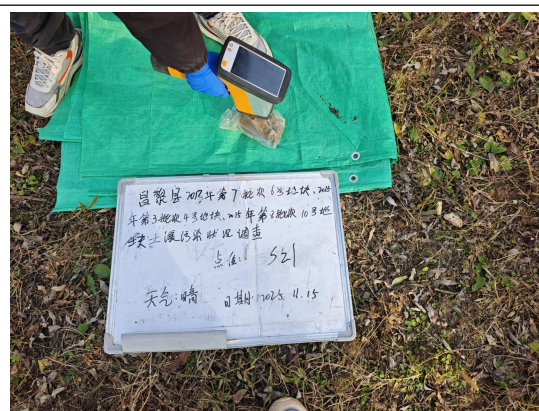 昌黎县2023年第7批次6号地块、2024
年第3批次4号地块、2025年第2批次10号地
块土壤污染状况调查
点位: S21
天气:晴 日期:2025.11.15